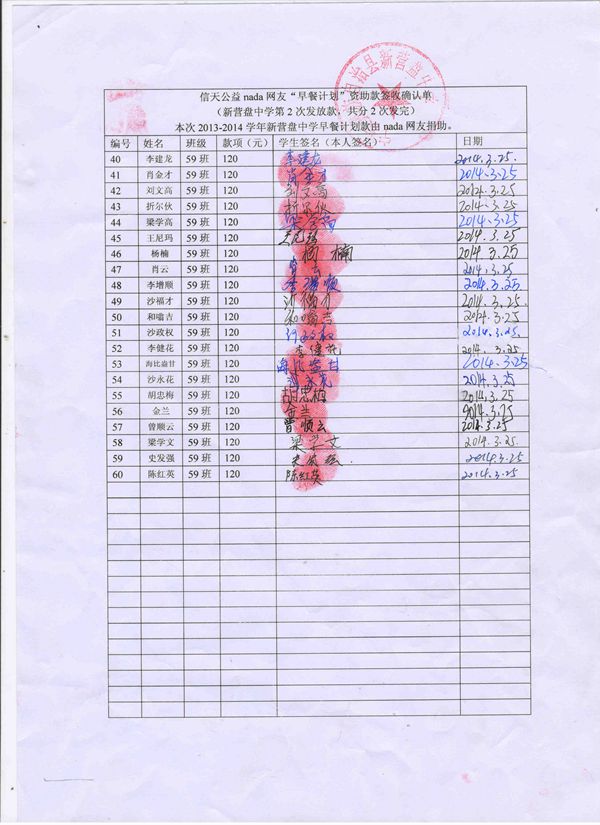 信天公益 nada 网友“早餐计划”资助款签收确认单
（新营盘中学第 2 次发放款，共分 2 次发完）
本次 2013-2014 学年新营盘中学早餐计划款由 nada 网友捐助。
编号 姓名 班级 款项（元） 学生签名（本人签名） 日期
40 李建龙 59 班 120 李建龙 2014.3.25.
41 肖金才 59 班 120 肖金才 2014.3-25
42 刘文高 59 班 120 刘文高 2014.3-25
43 折尔伙 59 班 120 2014.3-25
44 梁学高 59 班 120 梁学高 2014.3-25
45 王尼玛 59 班 120 王尼玛 2014.3.25
46 杨楠 59 班 120 杨楠 2014.3.25
47 肖云 59 班 120 肖云 2014.3.25
48 李增顺 59 班 120 李增顺 2014.3.25
49 沙福才 59 班 120 沙福才 2014.3.25.
50 和嘣吉 59 班 120 2014.3.25
51 沙政权 59 班 120 沙政权 2014.3.25
52 李健花 59 班 120 李健花 2014.3.25
53 海比盗甘 59 班 120 2014.3.25
54 沙永花 59 班 120 沙永花 2014.3.25
55 胡忠梅 59 班 120 胡忠梅 2014.3.25
56 金兰 59 班 120 金兰 2014.3.25
57 曾顺云 59 班 120 曾顺云 2014.3.25
58 梁学文 59 班 120 梁学文 2014.3.25.
59 史发强 59 班 120 史发强. 2014.3.25
60 陈红英 59 班 120 陈红英 2014.3.25